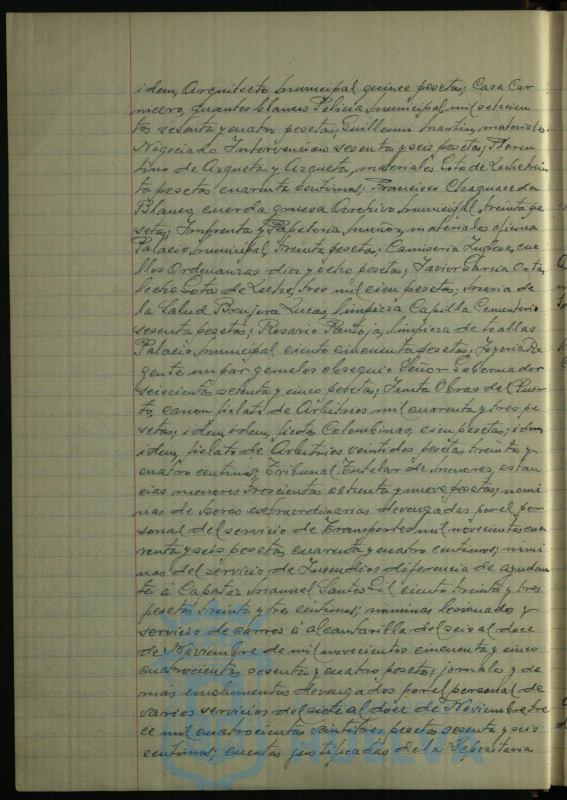 idem, Arquitecto municipal quince pesetas; Casa Car
nicero, guantes blancos Policia municipal, mil setecien
tas sesenta y cuatro pesetas; Guillermo Martin, materiales
Negociado Intervención sesenta y seis pesetas; Floren
tino de Azqueta y Azqueta, materiales Gota de Leche trein
ta pesetas cuarenta centimos; Francisco
Blanco, cuerda gruesa Archivo municipal, treinta pe
setas; Imprenta y Papeleria Muñoz, materiales oficina
Palacio municipal treinta pesetas; Camiseria Inglesa, cue
llos Ordenanzas diez y ocho pesetas; Javier Garcia Orta,
leche Gota de Leche, tres mil cien pesetas; Maria de
la Salud Brujera Lucas, limpieza Capilla Cementerio
sesenta pesetas; Rosario Pantoja, limpieza de toallas
Palacio municipal ciento cincuenta pesetas; Joyeria Re
gente un par gemelos obsequio Señor Gobernador
seiscientas setenta y cinco pesetas; Junta Obras del Puer
to, canon fielato de Arbitrios mil cuarenta y tres pe
setas; idem idem, fiestas Colombinas, cien pesetas; idem
idem, fielato de Arbitrios veintidos pesetas treinta y
cuatro centimos; Tribunal Tutelar de menores, estan
cias menores trescientas setenta y nueve pesetas; nomi
nas de horas extraordinarias devengadas por el per
sonal del servicio de Transportes mil novecientas cua
renta y seis pesetas cuarenta y cuatro centimos; nomi
nas del servicio de Incendios diferencia de ayudan
te á Capataz Manuel Santos Gil ciento treinta y tres
pesetas treinta y tres centimos; nominas lesionados y
servicio de carros á alcantarilla del seis al doce
de Noviembre de mil novecientos cincuenta y cinco
cuatrocientas sesenta y cuatro pesetas; jornales y de
mas emolumentos devengados por el personal de
varios servicios del siete al doce de Noviembre tre
ce mil cuatrocientas veintitres pesetas sesenta y seis
centimos; cuentas justificadas de la Depositaria
HUELVA